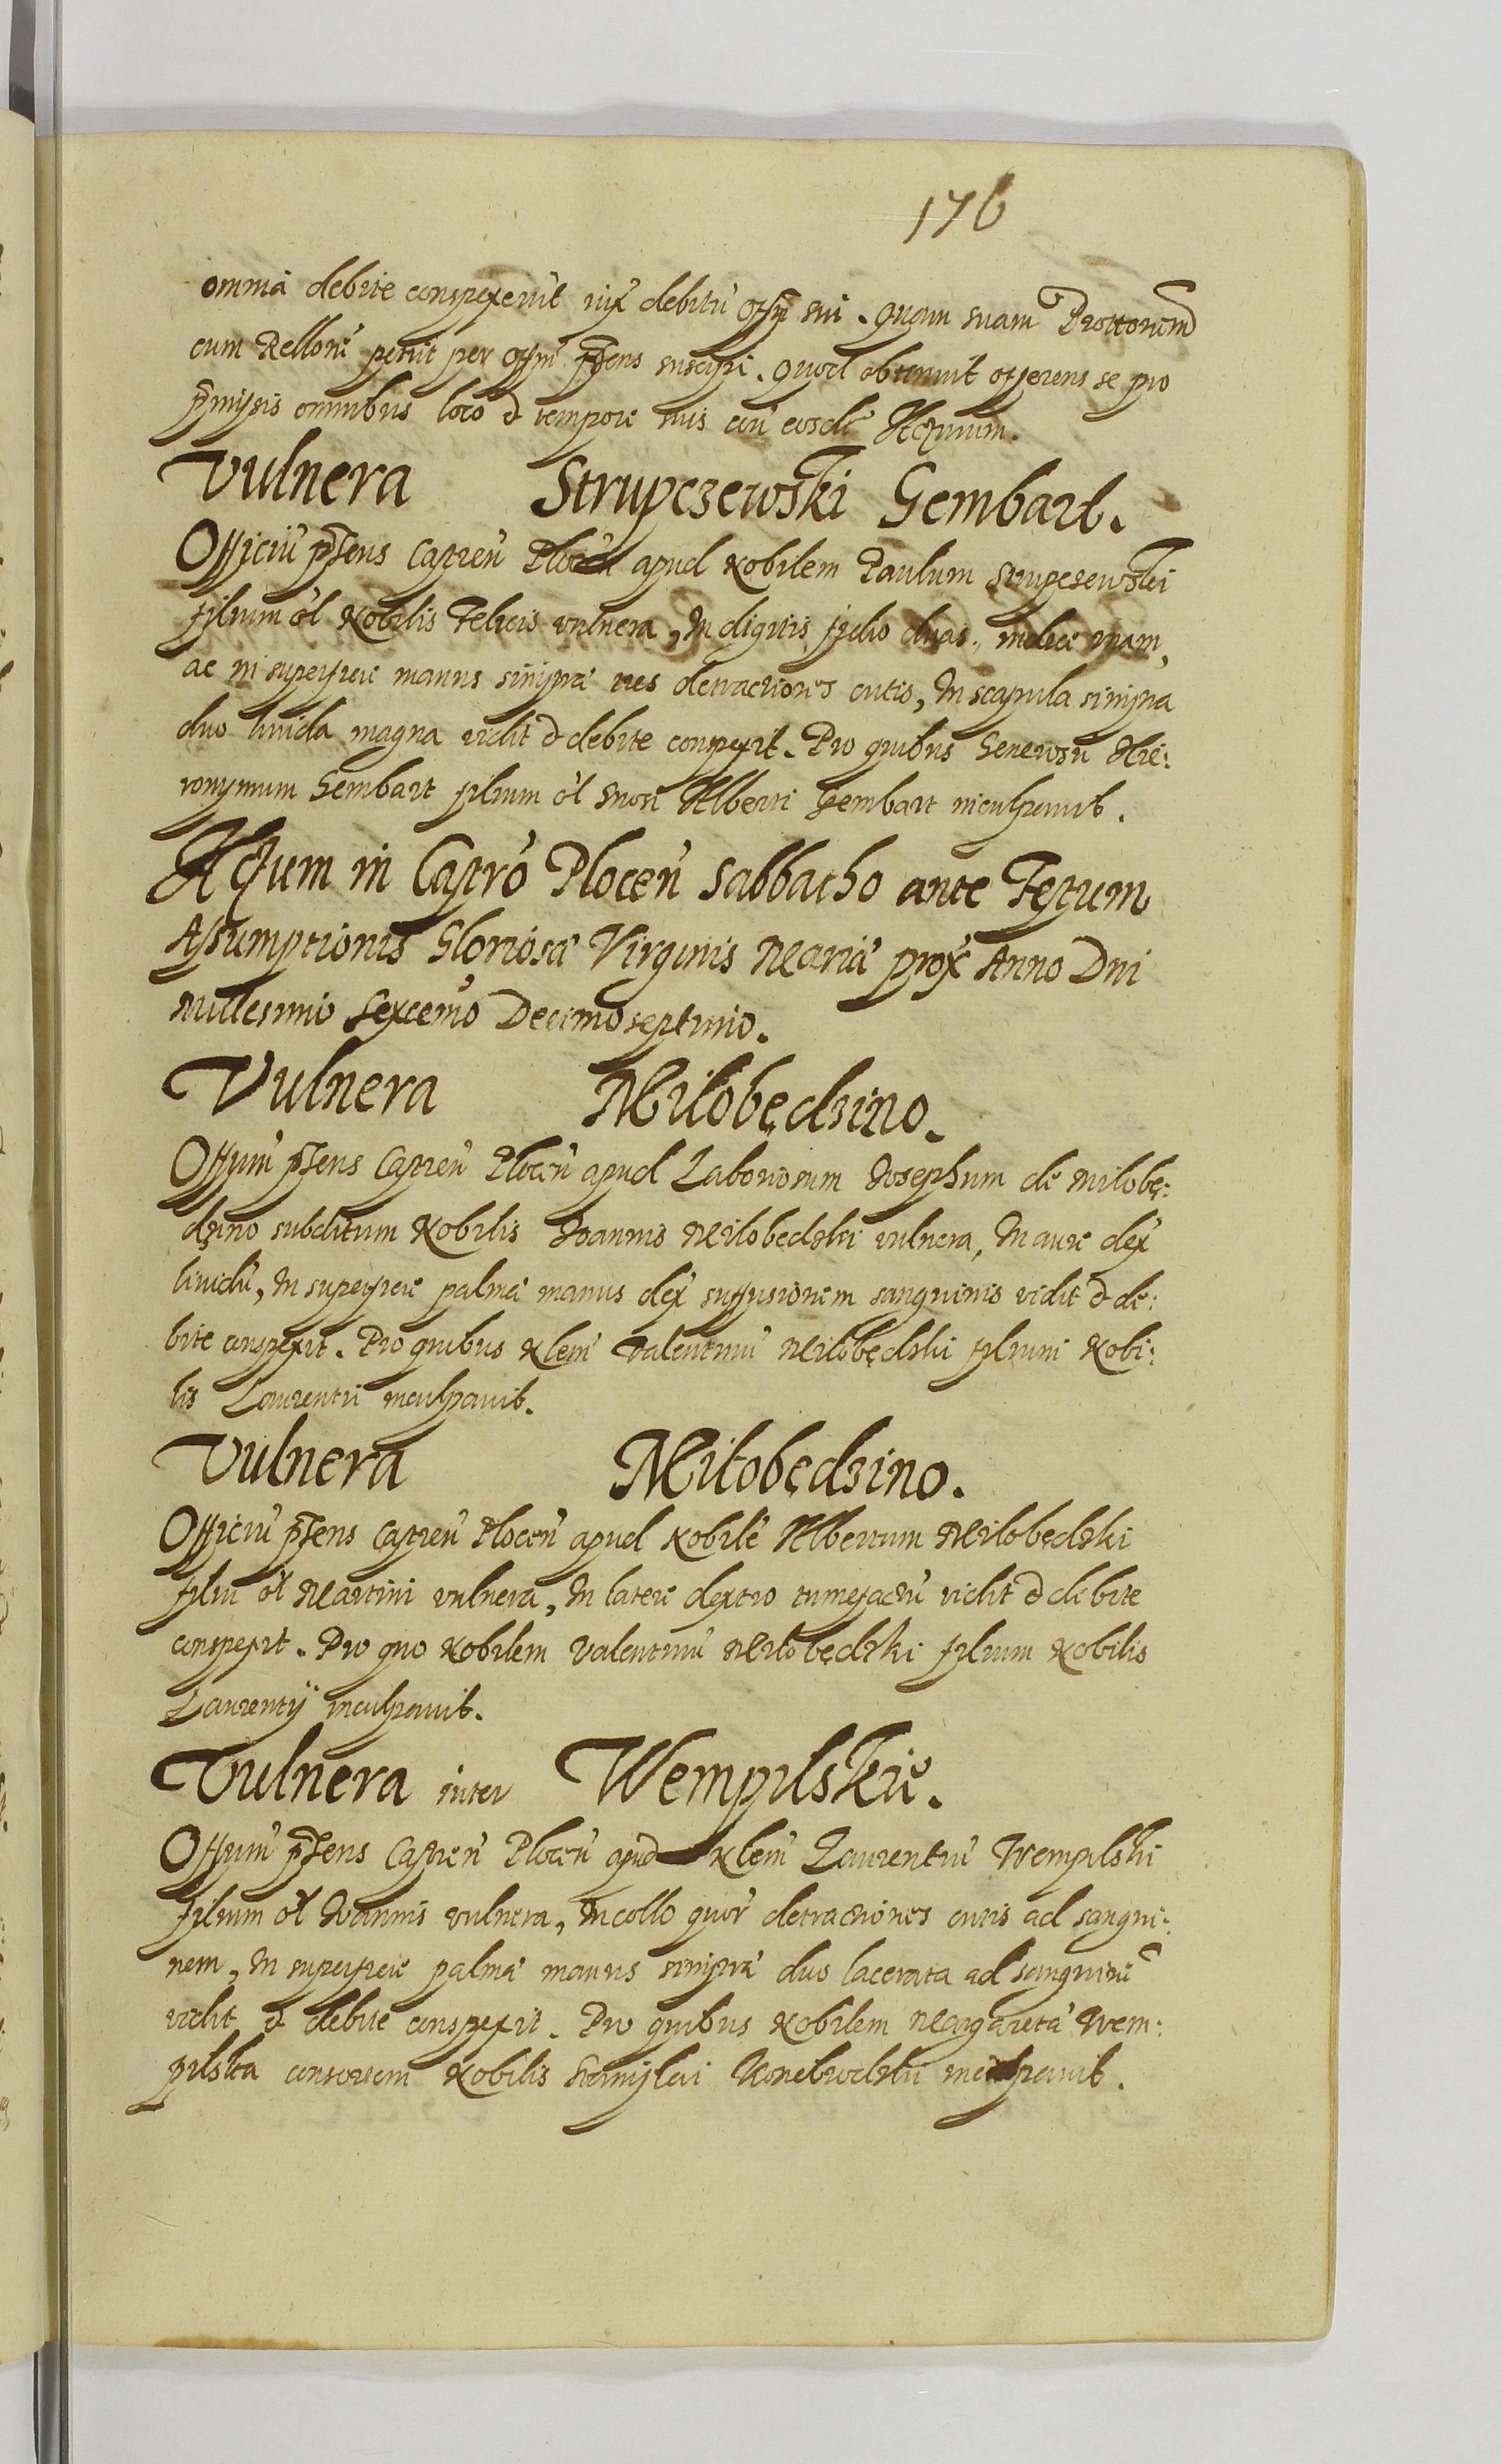 176
omnia debite conspexerit iux debitũ offy sui. Quam suam Prottonem
cum Relloñe petiit per offm p̃sens suscipi. Quod obtinuit offerens se pro
p̃missis omnibus loco & tempore suis coñ eosdẽ Acturum.
Vulnera Strupczewski Gembart.
Officiũ p̃sens Castreñ Ploceñ apud Nobilem Paulum Strupczewski
filium ol Nobilis Felicis vulnera, In digitis, fidio duas, indice vnam,
ac in superficie manus sinistræ tres detractiones cutis, In scapula sinistra
duo liuida magna vidit & debite conspexit. Pro quibus Generosũ Hie:
ronymum Gembart filium ol Gnosi Alberti Gembart inculpauit.
Actum in Castro Ploceñ Sabbatho ante Festum
Assumptionis Gloriosæ Virginis Mariæ prox̃ Anno Dni
Millesimo Sexceñto Decimoseptimo.
Vulnera Miłobędzino.
Offium p̃sens Castreñ Ploceñ apud Laboriosum Josephum de Milobę:
dzino subditum Nobilis Joannis Milobędzki vulnera, In aure dex̃
liuidũ, In superficie palmæ manus dex̃ suffusionem sanguinis vidit & de:
bite conspexit. Pro quibus Nlem Valentinũ Milobędzki filium Nobi:
lis Laurentii inculpauit.
Vulnera Miłobędzino.
Officiũ p̃sens Castreñ Ploceñ apud Nobilẽ Albertum Milobędzki
filiũ ol Martini vulnera, In latere dextro tumefactũ vidit & debite
conspexit. Pro quo Nobilem Valentinũ Milobędzki filium Nobilis
Laurentÿ inculpauit.
Vulnera inter Wempilskie.
Offium p̃sens Castreñ Ploceñ apud Nlem Laurentiũ Wempilski
filium ol Joannis vulnera, In collo quor̃ detractiones cutis ad sangui:
nem, In superficie palmæ manus sinistræ duo lacerata ad sanguinẽ
vidit & debite conspexit. Pro quibus Nobilem Margaretã Wem:
pilska consortem Nobilis Stanislai inculpauit.